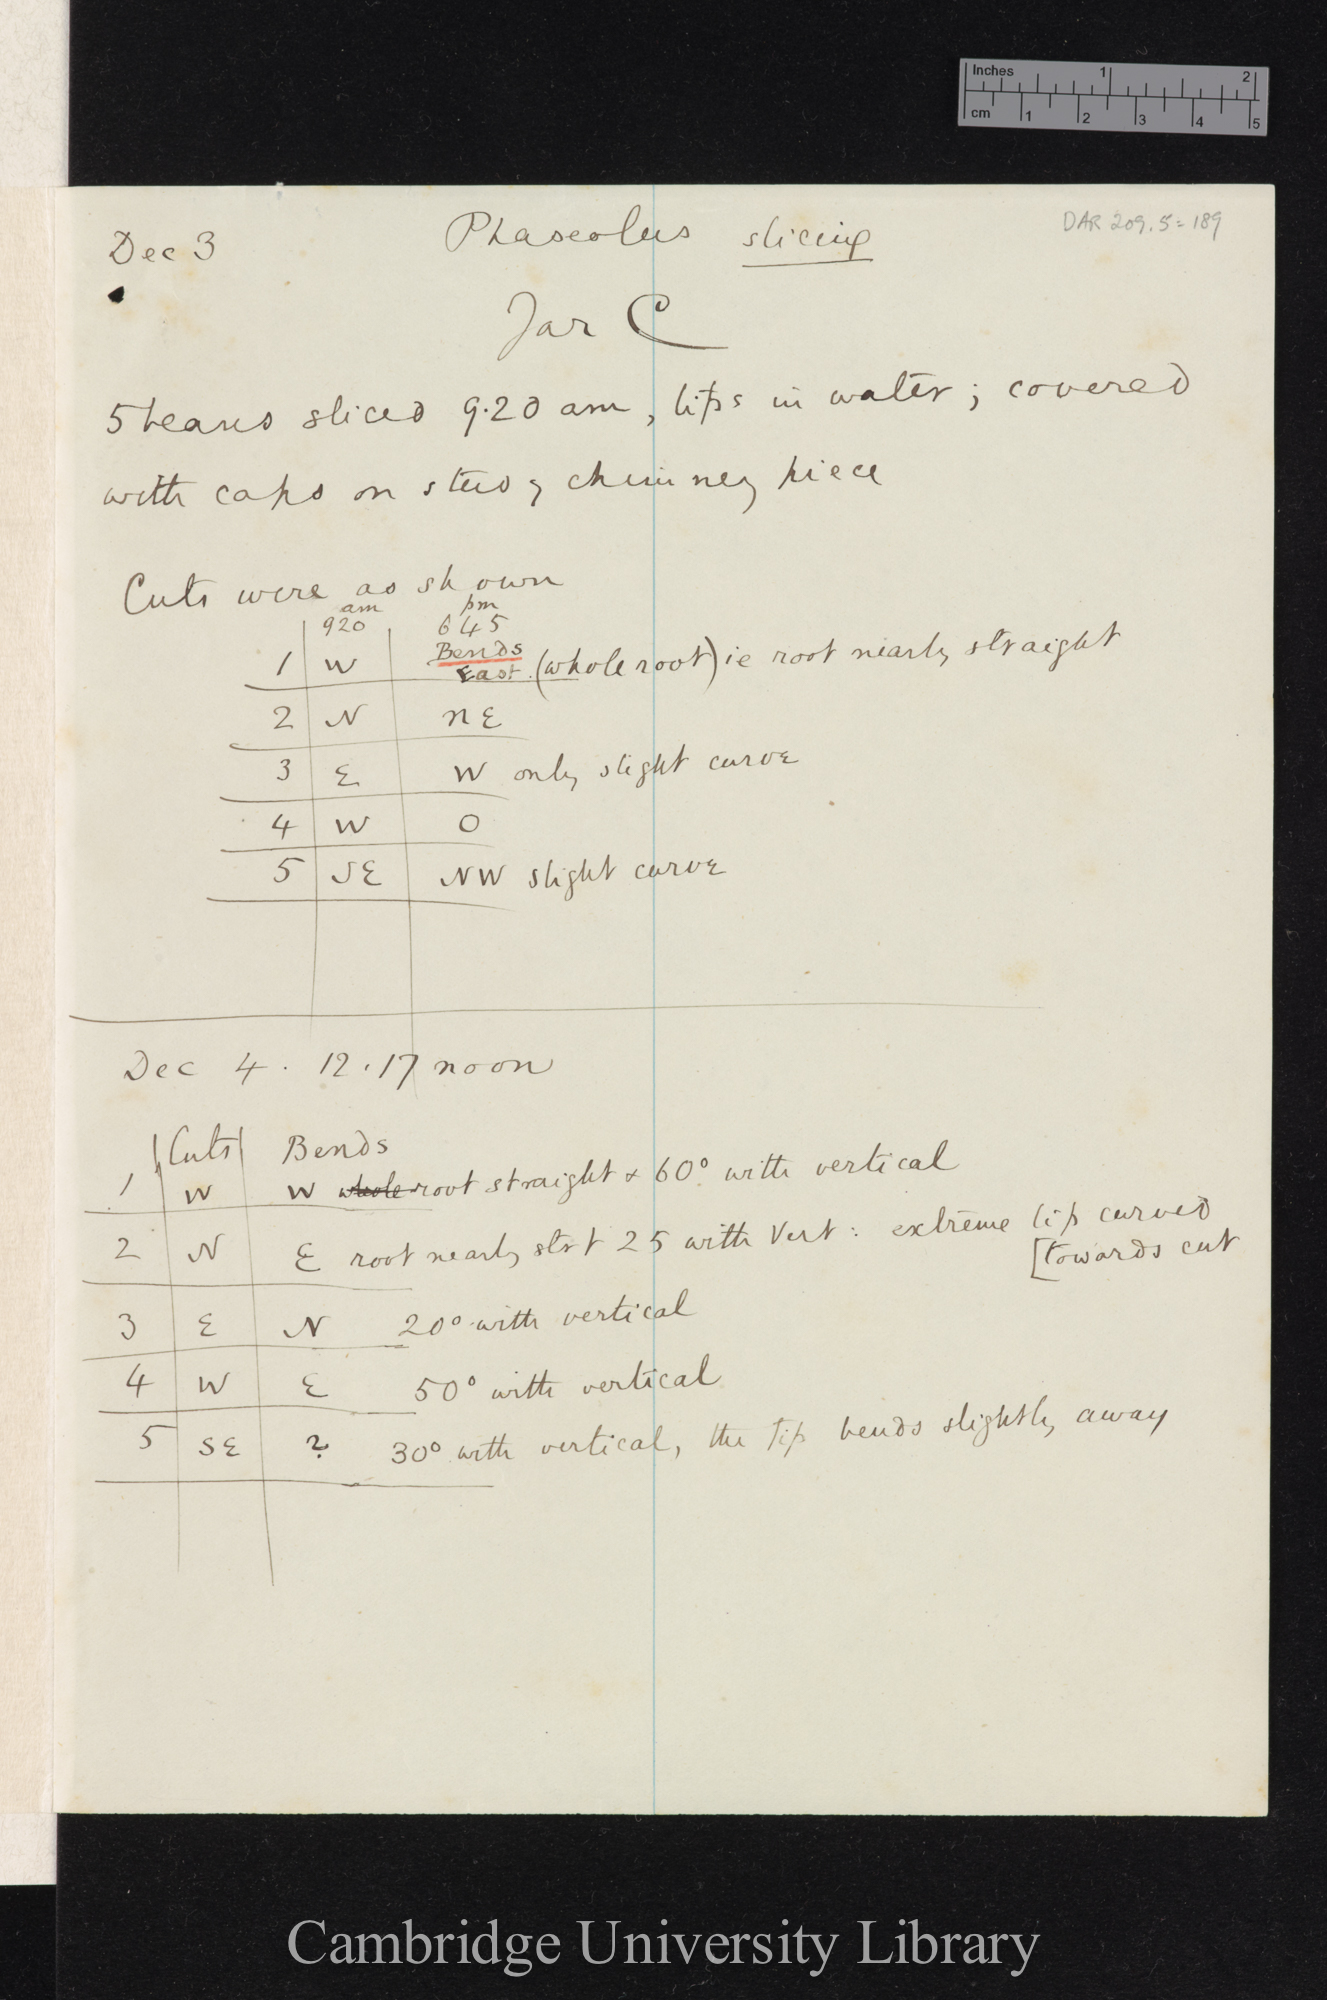 Inches 1 2
cm 1 2 3 4 5
DAR 209.5:189
Dec 3 Phaseolus slicing
Jar C
5 beans sliced 9.20 am, tips in water; covered
with caps on study chimney piece
Cuts were as shown
am pm
920 645
1 W Bends East (whole root) ie root nearly straight
2 N NE
3 E W only slight curve
4 W O
5 SE NW slight curve
Dec 4. 12.17 noon
Cuts Bends
1 W W whole root straight & 60° with vertical
2 N E root nearly strt 25 with Vert: extreme tip curved
[towards cut
3 E N 20° with vertical
4 W E 50° with vertical
5 SE ? 30° with vertical, the tip bends slightly away
Cambridge University Library